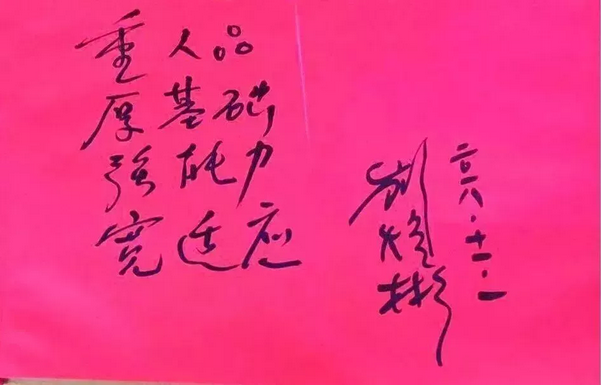 重人品
厚基础
强能力
宽适应
刘焕彬
二〇一八.十一.一